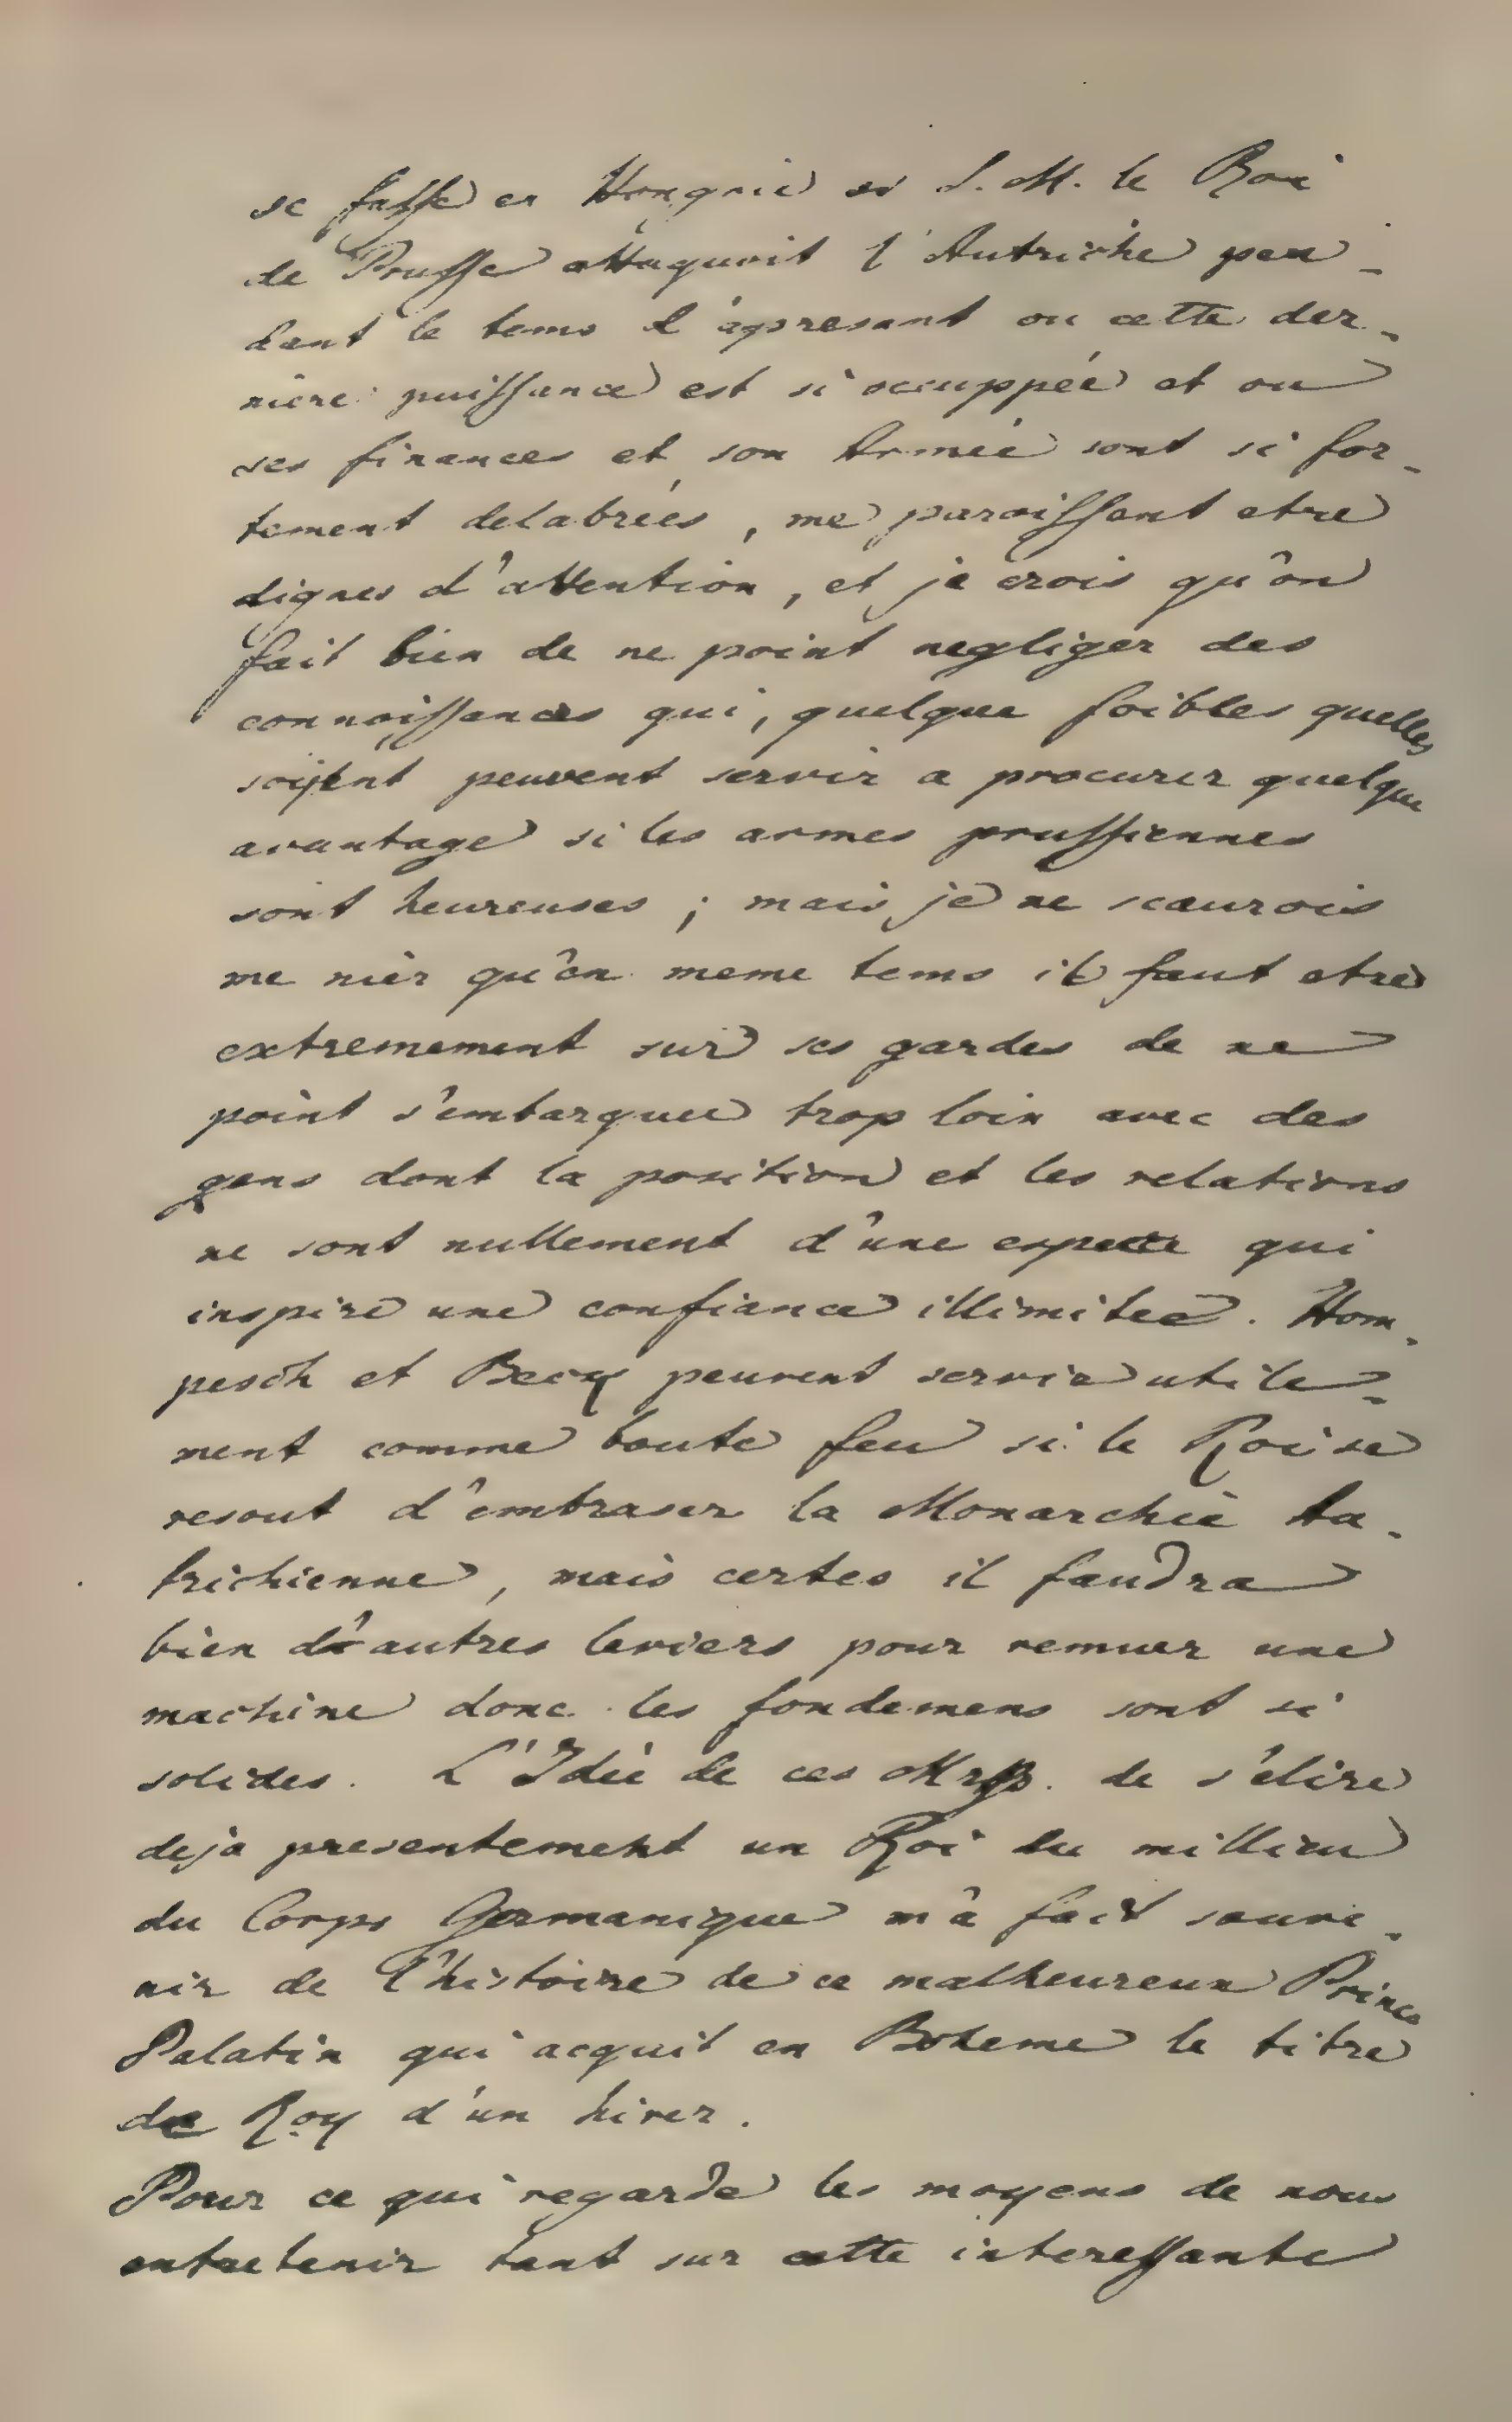 se fasse en Hongrie si S. M. le Roi
de Prusse attaquoit l'Autriche pen-
dant le tems d'apresant ou cette der-
niere puissance est si occuppée et ou
ses finances et son Armée sont si for-
tement delabrées, me paroissent etre
dignes d'attention, et je crois qu'on
fait bien de ne point negliger des
connoissances qui, quelque foibles quelles
soijent peuvent servir a procurer quelque
avantage si les armes prussiennes
sont heureuses; mais je ne scaurois
me nier qu'en meme tems il faut etre
extremement sur ses gardes de ne
point s'embarquer trop loin avec des
gens dont la position et les relations
ne sont nullement d'une espece qui
inspire une confiance illimitée. Hom-
pesch et Becy peuvent servir utile-
ment comme boute feu si le Roi se
resout d'embraser la Monarchie Au-
trichienne, mais certes il faudra
bien d'autres leviers pour remuer une
machine donc les fondemens sont si
solides. L'Idée de ces Mrss. de s'élire
deja presentement un Roi du millieu
du Corps Germanique m'a fait souve-
nir de l'histoire de ce malheureux Prince
Palatin qui acquit en Boheme le titre
de Roy d'un hiver.
Pour ce qui regarde les moyens de nous
entretenir tant sur cette interessante